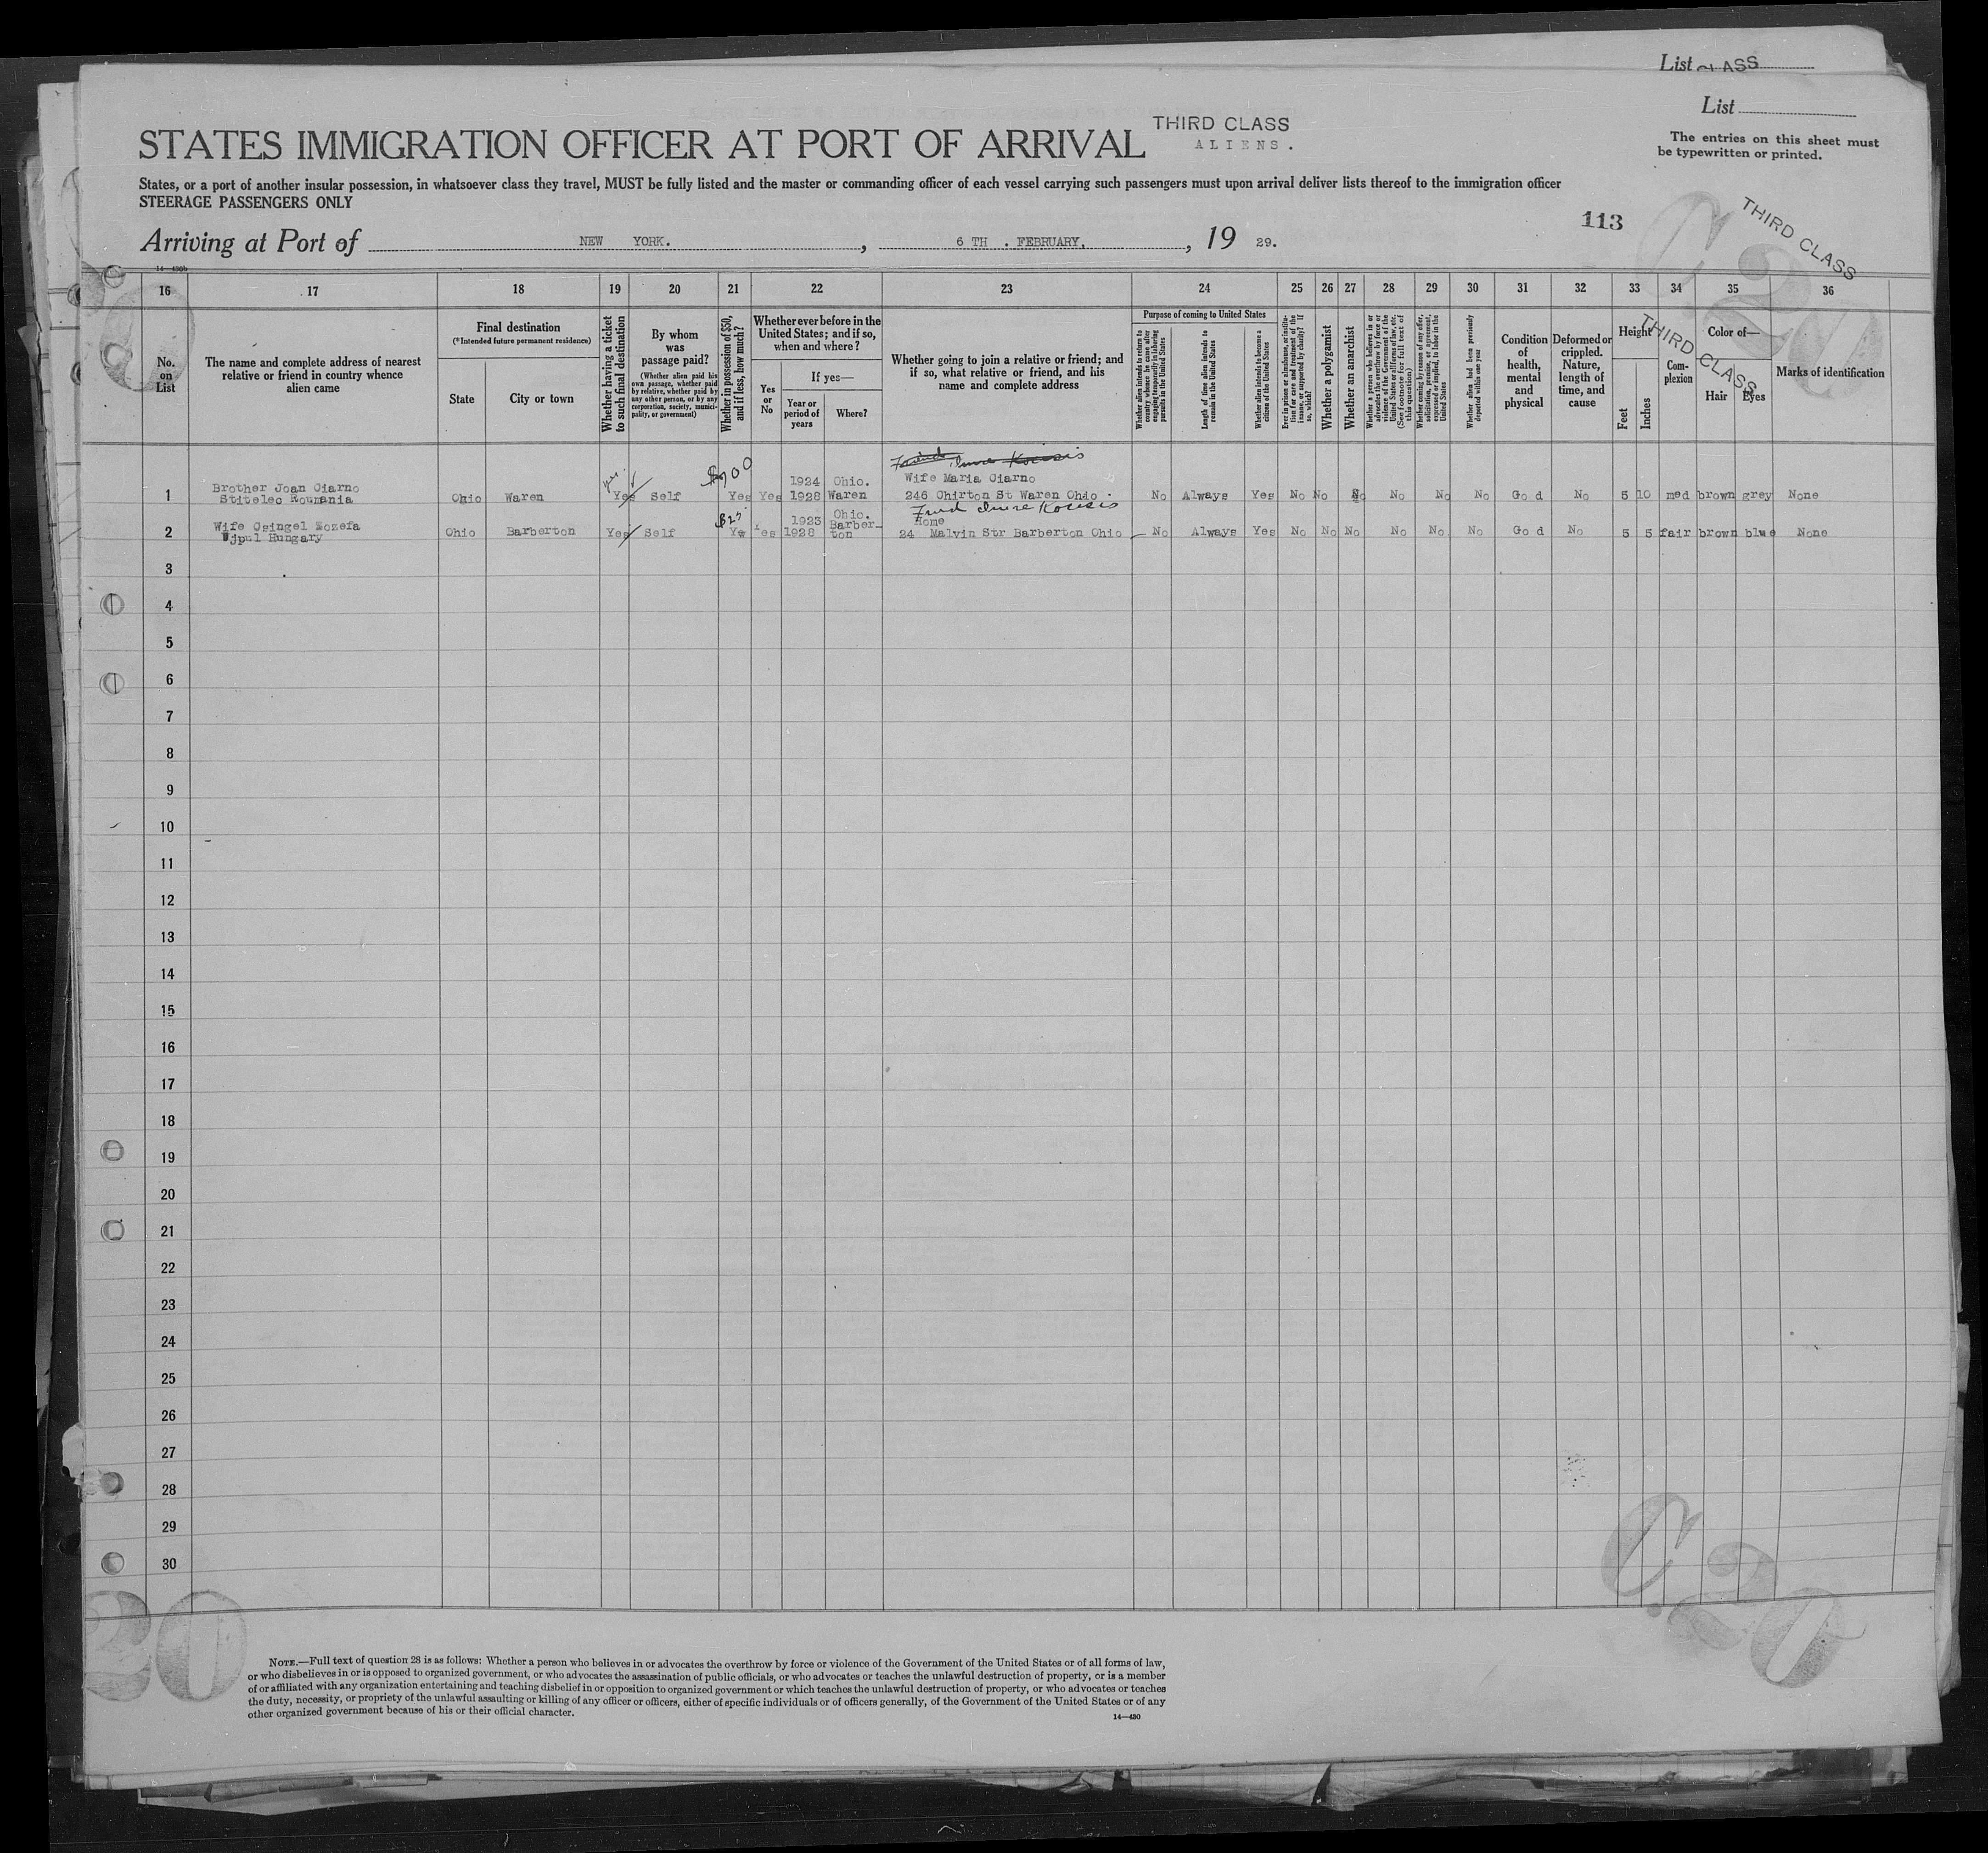 List CLASS
List
THIRD CLASS
STATES IMMIGRATION OFFICER AT PORT OF ARRIVAL
ALIENS.
The entries on this sheet must
be typewritten or printed.
States, or a port of another insular possession, in whatsoever class they travel, MUST be fully listed and the master or commanding officer of each vessel carrying such passengers must upon arrival deliver lists thereof to the immigration officer
STEERAGE PASSENGERS ONLY
113
THIRD CLASS
C.20
Arriving at Port of NEW YORK. , 6 TH . FEBRUARY. , 19 29.
14—430b
16 17 18 19 20 21 22 23 24 25 26 27 28 29 30 31 32 33 34 35 36
No.
on
List
The name and complete address of nearest
relative or friend in country whence
alien came
Final destination
(*Intended future permanent residence)
State
City or town
Whether having a ticket
to such final destination
By whom
was
passage paid?
(Whether alien paid his
own passage, whether paid
by relative, whether paid by
any other person, or by any
corporation, society, munici-
pality, or government)
Whether in possession of $50,
and if less, how much?
Whether ever before in the
United States; and if so,
when and where?
Yes
or
No
If yes—
Year or
period of
years
Where?
Whether going to join a relative or friend; and
if so, what relative or friend, and his
name and complete address
Purpose of coming to United States
Whether alien intends to return to
country whence he came after
engaging temporarily in laboring
pursuits in the United States
Length of time alien intends to
remain in the United States
Whether alien intends to become a
citizen of the United States
Ever in prison or almshouse, or institu-
tion for care and treatment of the
insane, or supported by charity? If
so, which?
Whether a polygamist
Whether an anarchist
Whether a person who believes in or
advocates the overthrow by force or
violence of the Government of the
United States or all forms of law, etc.
(See footnote for full text of
this question)
Whether coming by reason of any offer,
solicitation, promise, or agreement,
expressed or implied, to labor in the
United States
Whether alien had been previously
deported within one year
Condition
of
health,
mental
and
physical
Deformed or
crippled.
Nature,
length of
time, and
cause
Height
Feet
Inches
THIRD CLASS
Com-
plexion
Color of—
Hair
Eyes
Marks of identification
Friend Imre Kocsis
yes $100 1924 Ohio. Wife Maria Ciarno
Brother Joan Ciarno
1 Stitelec Roumania Ohio Waren Yes Self Yes Yes 1928 Waren 246 Chirton St Waren Ohio . No Always Yes No No No No No No Go d No 5 10 med brown grey None
Friend Imre Kocsis
$25 1923 Ohio. Barber- Home
Wife Csingel Rozefa
2 Ujpul Hungary Ohio Barberton Yes Self Ye Yes 1928 ton 24 Malvin Str Barberton Ohio No Always Yes No No No No No No Go d No 5 5 fair brown blue None
3
4
5
6
7
8
9
10
11
12
13
14
15
16
17
18
19
20
21
22
23
24
25
26
27
28
29
30
20
C.20
NOTE.—Full text of question 28 is as follows: Whether a person who believes in or advocates the overthrow by force or violence of the Government of the United States or of all forms of law,
or who disbelieves in or is opposed to organized government, or who advocates the assassination of public officials, or who advocates or teaches the unlawful destruction of property, or is a member
of or affiliated with any organization entertaining and teaching disbelief in or opposition to organized government or which teaches the unlawful destruction of property, or who advocates or teaches
the duty, necessity, or propriety of the unlawful assaulting or killing of any officer or officers, either of specific individuals or of officers generally, of the Government of the United States or of any
other organized government because of his or their official character.
14—430